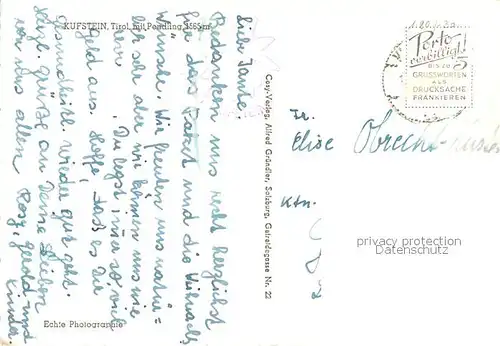 KUFSTEIN, Tirol, mit Pendling, 1565m
Liebe Tante
Bedanken uns recht herzlichst
für das Paket und die Weihnachts
Wünsche. Wir freuten uns natür-
lich sehr aber wir können uns nie
Du legst immer so viel
Geld aus. Hoffe, daß es Dir
Gesundheitl. wieder gut geht.
Herzl. Grüße an Deine Lieben
von uns allen Rosy, und
Kinder
Echte Photographie
Cosy-Verlag, Alfred Gründler, Salzburg, Getreidegasse Nr. 22
Porto
verbilligt!
BIS ZU
5
GRUSSWORTEN
ALS
DRUCKSACHE
FRANKIEREN
Fr.
Elise Obrecht
Ktn.
privacy protection
Datenschutz